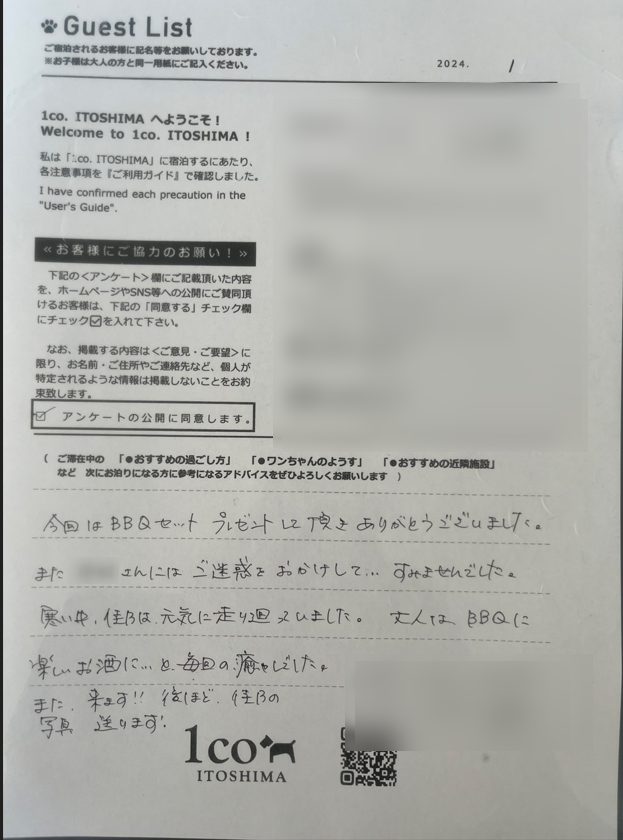 Guest List
ご宿泊されるお客様に記名等をお願いしております。
※お子様は大人の方と同一用紙にご記入ください。
2024. /
1co. ITOSHIMA へようこそ！
Welcome to 1co. ITOSHIMA !
私は「1co. ITOSHIMA」に宿泊するにあたり、
各注意事項を『ご利用ガイド』で確認しました。
I have confirmed each precaution in the
"User's Guide".
≪お客様にご協力のお願い！≫
下記の＜アンケート＞欄にご記載頂いた内容
を、ホームページやSNS等への公開にご賛同頂
けるお客様は、下記の「同意する」チェック欄
にチェック☑を入れて下さい。
なお、掲載する内容は＜ご意見・ご要望＞に
限り、お名前・ご住所やご連絡先など、個人が
特定されるような情報は掲載しないことをお約
束致します。
☑ アンケートの公開に同意します。
（ ご滞在中の 「●おすすめの過ごし方」 「●ワンちゃんのようす」 「●おすすめの近隣施設」
など 次にお泊りになる方に参考になるアドバイスをぜひよろしくお願いします ）
今回はBBQセット プレゼントして頂きありがとうございました。
また さんには ご迷惑をおかけして… すみませんでした。
寒い中、 は 元気に走り回っていました。 大人は BBQに
楽しいお酒に…と 毎回の癒やしでした。
また、来ます!! 後ほど、 の
写真 送ります!
1co
ITOSHIMA